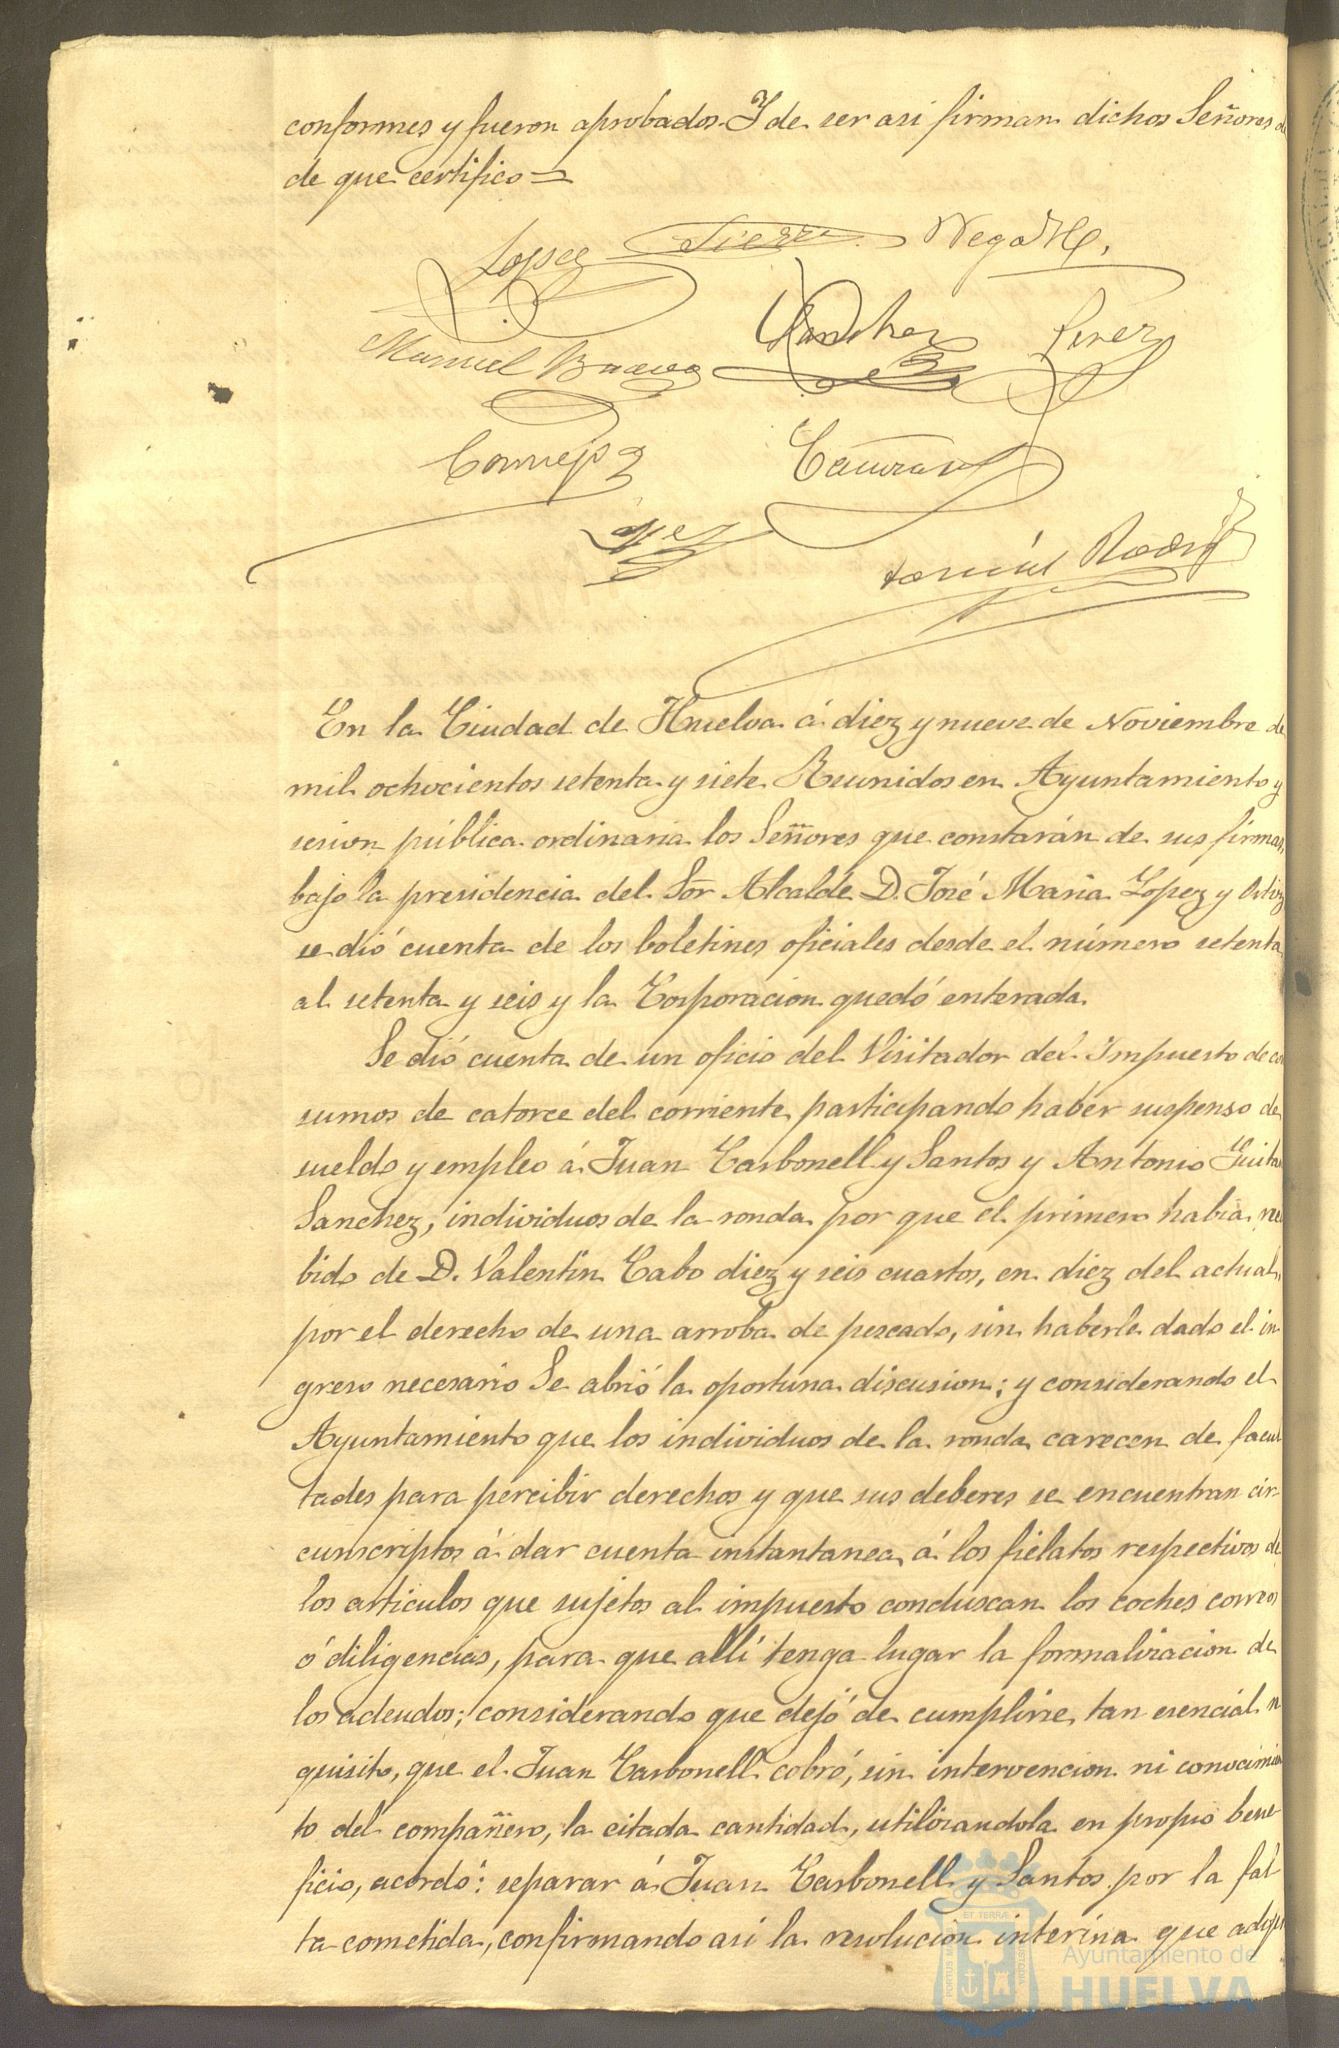 conformes y fueron aprobados. Y de ser asi firman dichos Señores
de que certifico =
Lopez Sierra Vega
Manuel Bueno Sanchez Perez
Cornejo
Rodrig
En la Ciudad de Huelva á diez y nueve de Noviembre de
mil ochocientos setenta y siete Reunidos en Ayuntamiento y
sesion pública ordinaria los Señores que constarán de sus firmas,
bajo la presidencia del Sor Alcalde D. José Maria Lopez y Ortiz
se dió cuenta de los boletines oficiales desde el número setenta
al setenta y seis y la Corporacion quedó enterada.
Se dió cuenta de un oficio del Visitador del Impuesto de con
sumos de catorce del corriente, participando haber suspenso de
sueldo y empleo á Juan Carbonell y Santos y Antonio
Sanchez, individuos de la ronda por que el primero habia reci
bido de D. Valentin Cabo diez y seis cuartos, en diez del actual,
por el derecho de una arroba de pescado, sin haberle dado el in
greso necesario Se abrió la oportuna discusion; y considerando el
Ayuntamiento que los individuos de la ronda carecen de facul
tades para percibir derechos y que sus deberes se encuentran cir-
cunscriptos á dar cuenta instantanea, á los fielatos respectivos de
los articulos que sujetos al impuesto conduscan los coches correos
ó diligencias, para que allí tenga lugar la formalizacion de
los adeudos; considerando que dejó de cumplirse, tan esencial re
quisito, que el Juan Carbonell cobró, sin intervencion ni conocimien
to del compañero, la citada cantidad, utilizandola en propio bene-
ficio, acordó: separar á Juan Carbonell y Santos por la fal-
ta cometida, confirmando asi la resolucion interina que adop
Ayuntamiento de
HUELVA